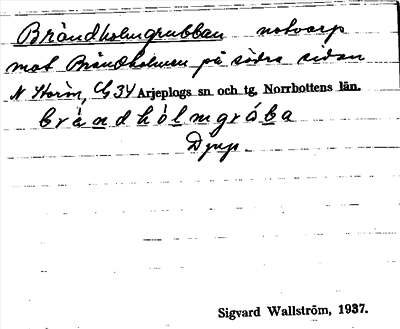 Brändholmgrubban notvarp
mot Brändholmen på södra sidan
N Horn, G 34 Arjeplogs sn. och tg. Norrbottens län.
brändhólmgróba
Djup.
Sigvard Wallström, 1937.